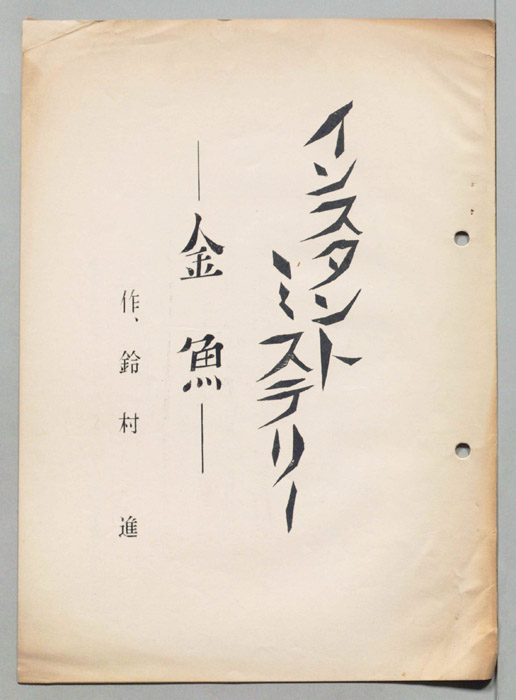 インスタント
ミステリー
―金魚―
作、鈴村 進